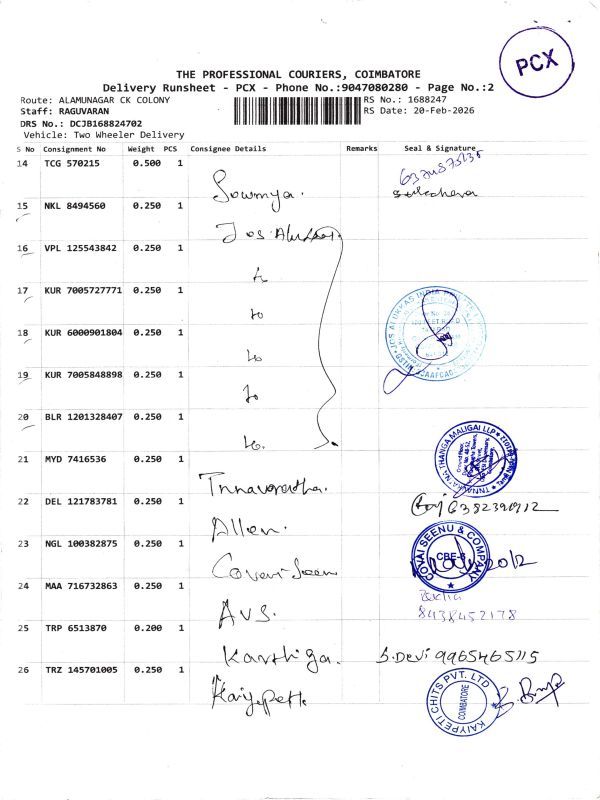 PCX
THE PROFESSIONAL COURIERS, COIMBATORE
Delivery Runsheet - PCX - Phone No.:9047080280 - Page No.:2
Route: ALAMUNAGAR CK COLONY
Staff: RAGUVARAN
DRS No.: DCJB168824702
Vehicle: Two Wheeler Delivery
RS No.: 1688247
RS Date: 20-Feb-2026
S No Consignment No Weight PCS Consignee Details Remarks Seal & Signature
14 TCG 570215 0.500 1 Sowmya.
15 NKL 8494560 0.250 1 Jos Alukkas.
16 VPL 125543842 0.250 1
17 KUR 7005727771 0.250 1
18 KUR 6000901804 0.250 1
19 KUR 7005848898 0.250 1
20 BLR 1201328407 0.250 1
JOS ALUKKAS INDIA
21 MYD 7416536 0.250 1
THANGA MALIGAI LLP
22 DEL 121783781 0.250 1 Allen. 6382390912
23 NGL 100382875 0.250 1 Covai Seenu
COVAI SEENU & COMPANY
24 MAA 716732863 0.250 1 AVS. 8438452178
25 TRP 6513870 0.200 1 Karthiga. S.Devi 9965465115
26 TRZ 145701005 0.250 1 Kaiypetti
KAIYPETI CHITS PVT. LTD
COIMBATORE